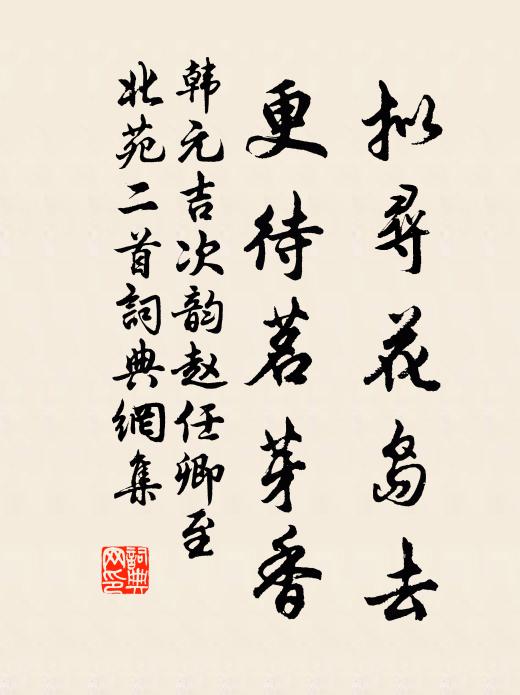 拟寻花岛去
更待茗芽香
韩元吉次韵赵任卿至
北苑二首詞典網集
詞典
网印